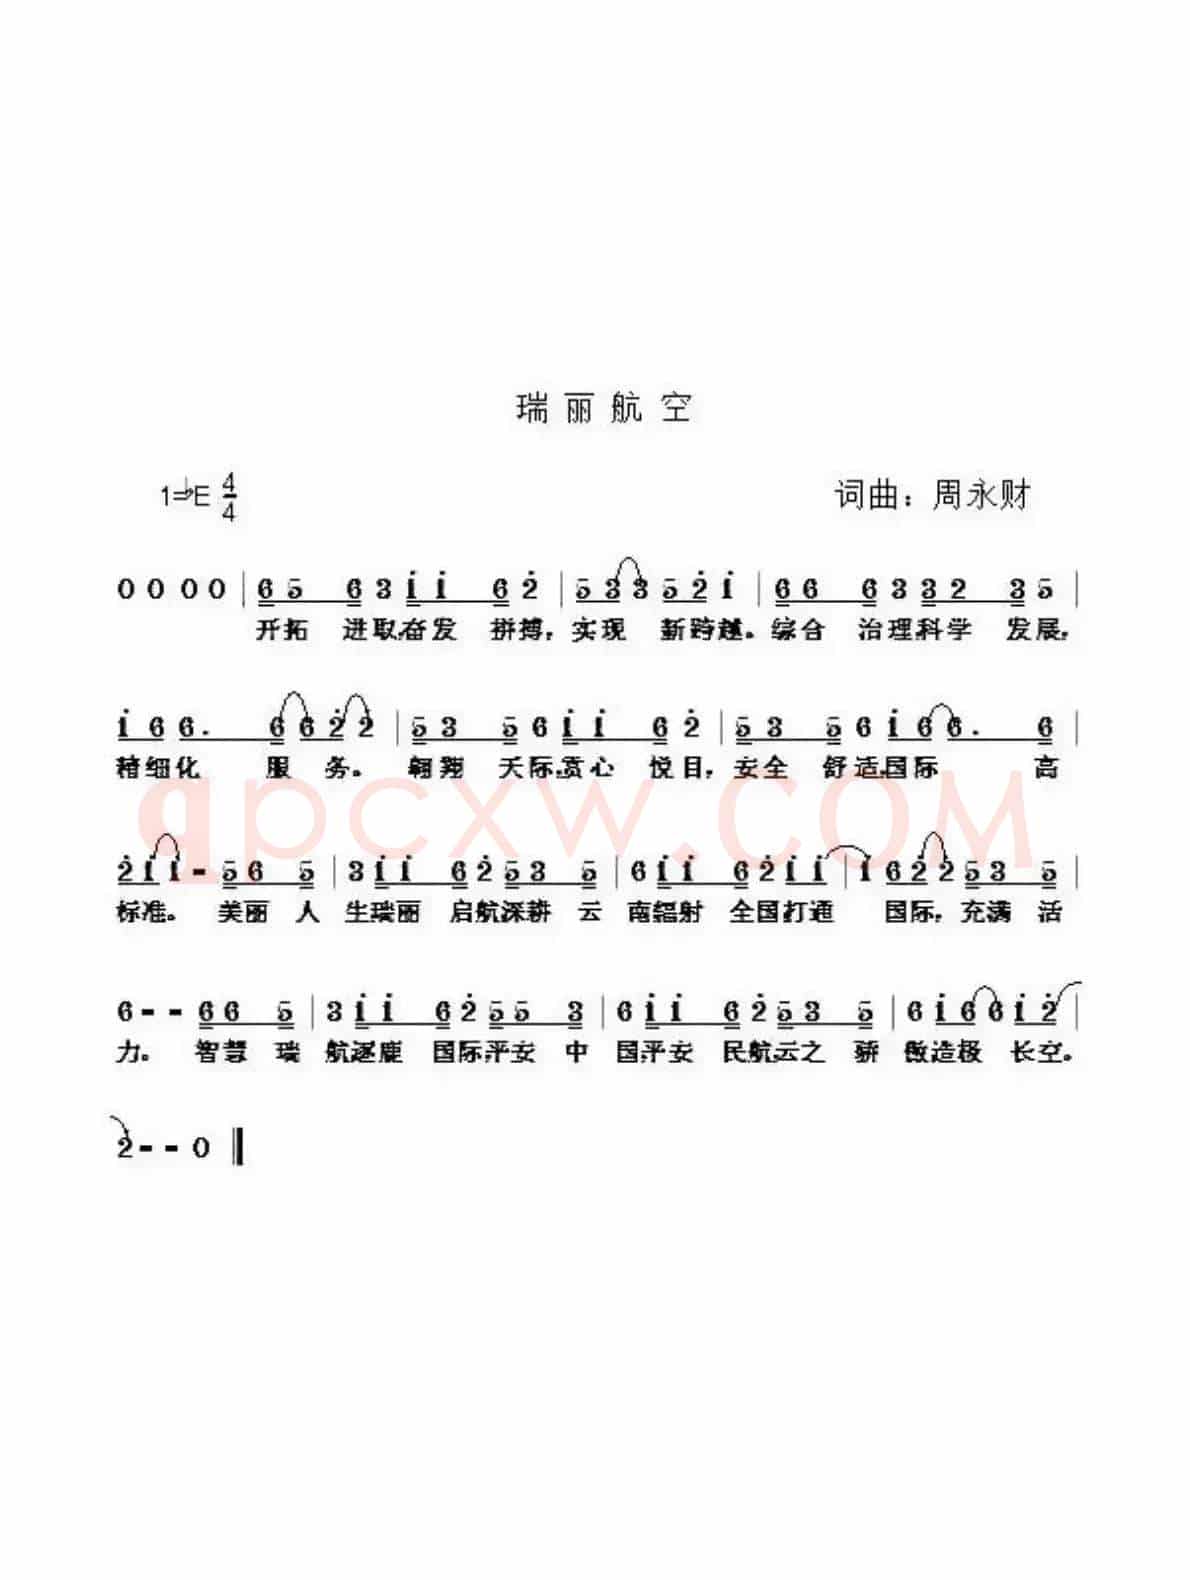 瑞丽航空
1=♭E 4/4 词曲：周永财
0 0 0 0 | 6 5 6 3 i i 6 2̇ | 5 3 3 5 2̇ i | 6 6 6 3 3 2 3 5 |
开拓 进取,奋发 拼搏，实现 新跨越。综合 治理,科学 发展，
i 6 6. 6 6 2̇ 2̇ | 5 3 5 6 i i 6 2̇ | 5 3 5 6 i 6 6. 6 |
精细化 服 务。 翱翔 天际,赏心 悦目，安全 舒适,国际 高
qpcxw.COM
2̇ i i - 5 6 5 | 3 i i 6 2̇ 5 3 5 | 6 i i 6 2̇ i i | i 6 2̇ 2̇ 5 3 5 |
标准。 美丽 人 生瑞丽 启航,深耕 云 南辐射 全国,打通 国际，充满 活
6 - - 6 6 5 | 3 i i 6 2̇ 5 5 3 | 6 i i 6 2̇ 5 3 5 | 6 i 6 6 i 2̇ |
力。 智慧 瑞 航逐鹿 国际,平安 中 国,平安 民航,云之 骄 傲造极 长空。
2 - - 0